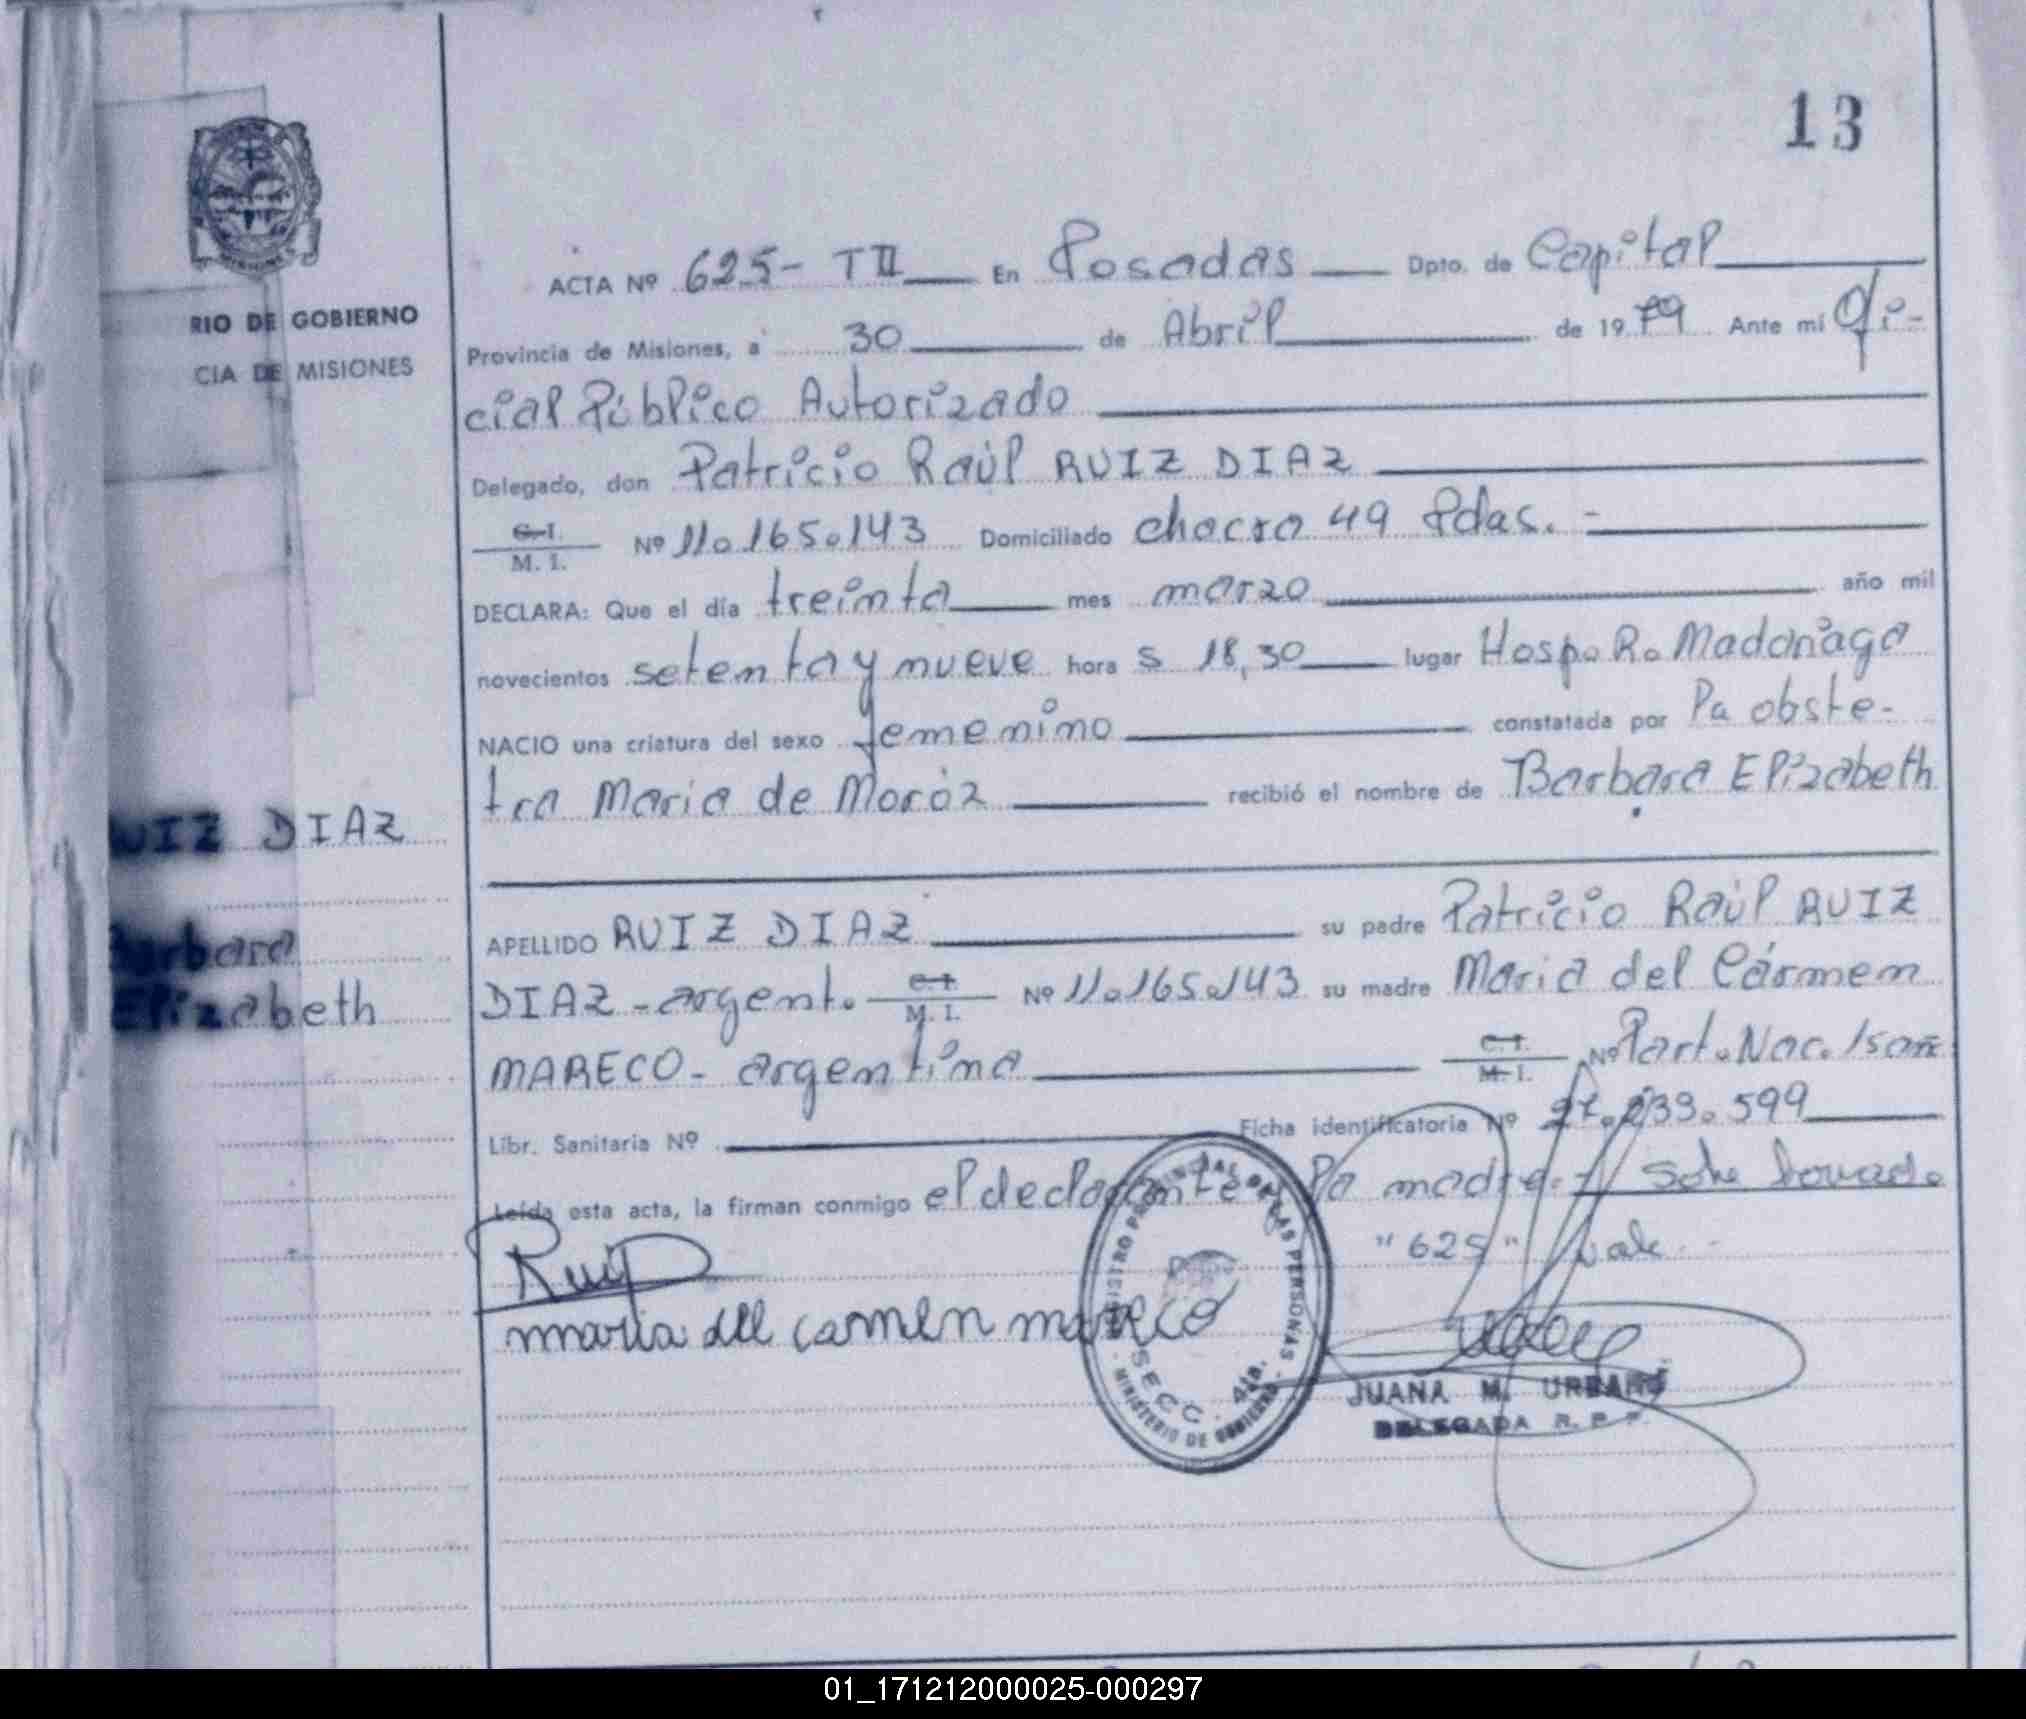 13
ACTA Nº 625- TII En Posadas Dpto. de Capital
RIO DE GOBIERNO
CIA DE MISIONES
Provincia de Misiones, a 30 de Abril de 1979 Ante mi Ofi-
cial Público Autorizado
Delegado, don Patricio Raúl RUIZ DIAZ
C.I.
M. I. Nº 11.165.143 Domiciliado chacra 49 Pdas. -
DECLARA: Que el día treinta mes marzo año mil
novecientos setenta y nueve hora s 18,30 lugar Hosp. R. Madariaga
NACIO una criatura del sexo femenino constatada por la obste-
tra Maria de Moróz recibió el nombre de Barbara Elizabeth
RUIZ DIAZ
Barbara
Elizabeth
APELLIDO RUIZ DIAZ su padre Patricio Raúl RUIZ
DIAZ - argent. C.I.
M. I. Nº 11.165.143 su madre Maria del Cármen
MARECO - argentina C.I.
M. I. Nº Part. Nac.
Libr. Sanitaria Nº Ficha identificatoria Nº 27.233.599
Leída esta acta, la firman conmigo el declarante la madre.- Sobre borrado
"625" vale -
Ruiz D
maria del carmen mareco
REGISTRO PROVINCIAL DE LAS PERSONAS
SECC. 4ta.
MINISTERIO DE GOBIERNO
JUANA M. URBANO
DELEGADA R. P. P.
01_171212000025-000297